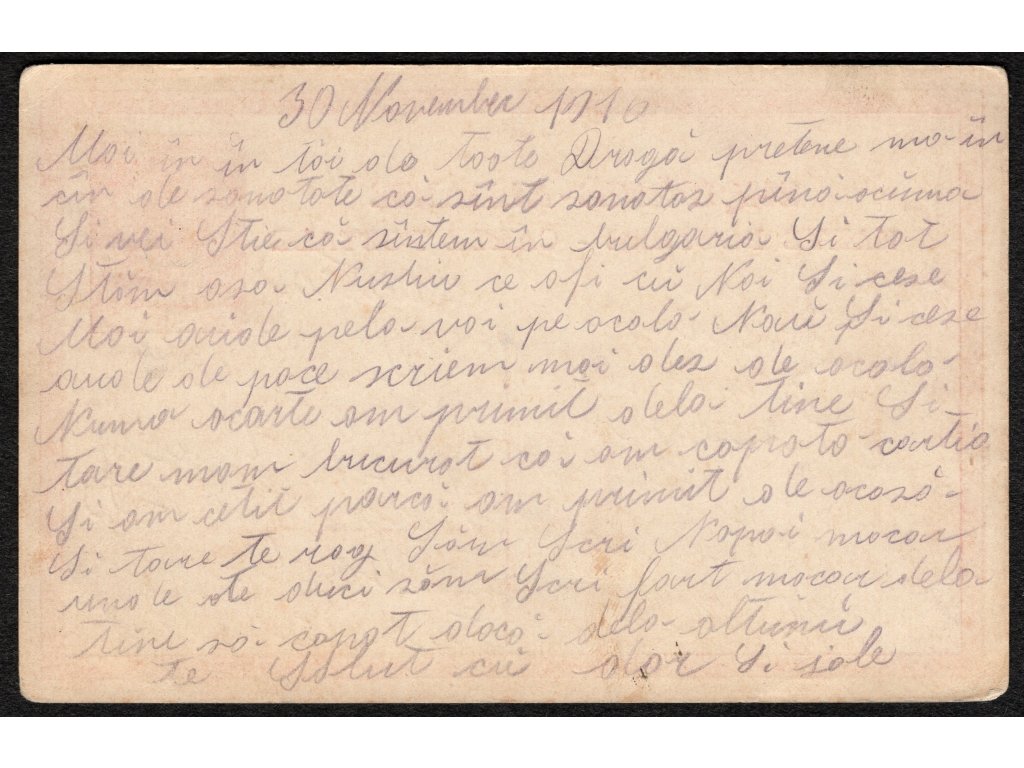 30 November 1916
Mai în în tâi de toate Dragă pretene ma în
cin de sanatate că sînt sanatas pînă acuma
Si vei Stie că sîntem în bulgaria Si tot
Stăm asa Nustiu ce afi cu Noi Si cese
Mai aude pela voi pe acolo Naŭ Si cese
aude de pace scriem mai des de acolo
Numa ocarte am primit dela tine Si
tare mam bucurat că am capata cartia
Si am cetit parcă am primit de acasă
Si tare te rog Săm Scri Napoi macar
unde te duci săm Scri fart macar dela
tine să capat dacă dela altunu
te Salut cu dor Si jale